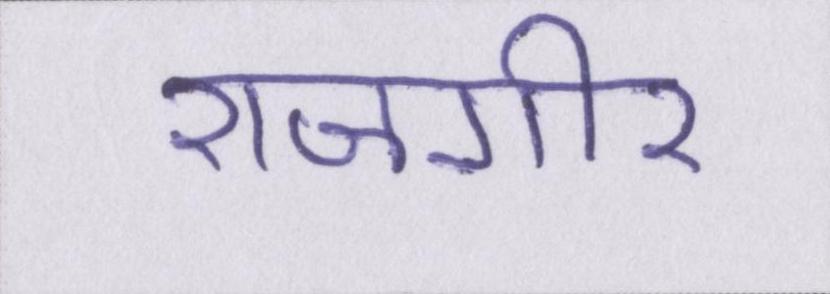 राजगीर